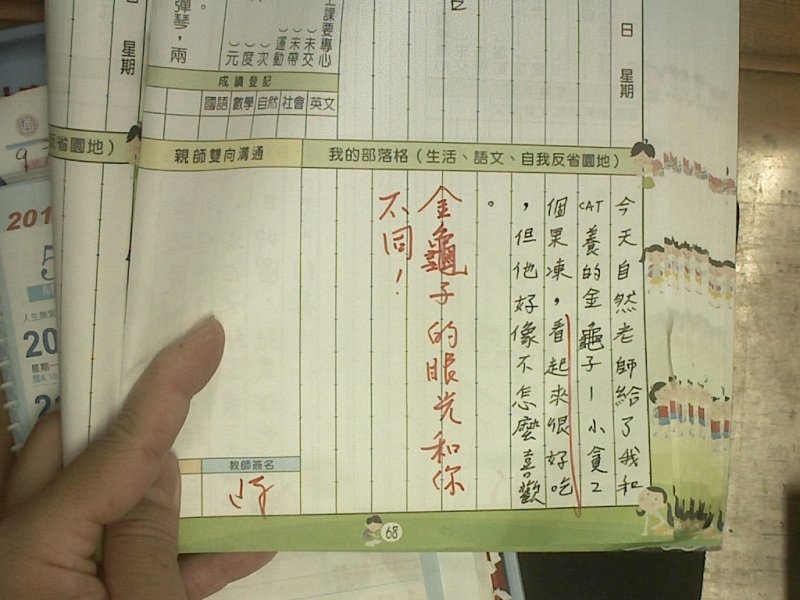 日 星期
星期
彈琴，兩
。
上課要專心
︶未交
︶未帶
︶運動
︶次
︶度
︶元
成績登記
國語 數學 自然 社會 英文
反省園地）
親師雙向溝通
我的部落格（生活、語文、自我反省園地）
今天自然老師給了我和
CAT養的金龜子—小貪2
個果凍，看起來很好吃
，但他好像不怎麼喜歡
。
金龜子的眼光和你
不同！
教師簽名
68
201
5
人生無常
20
星期一
21
9